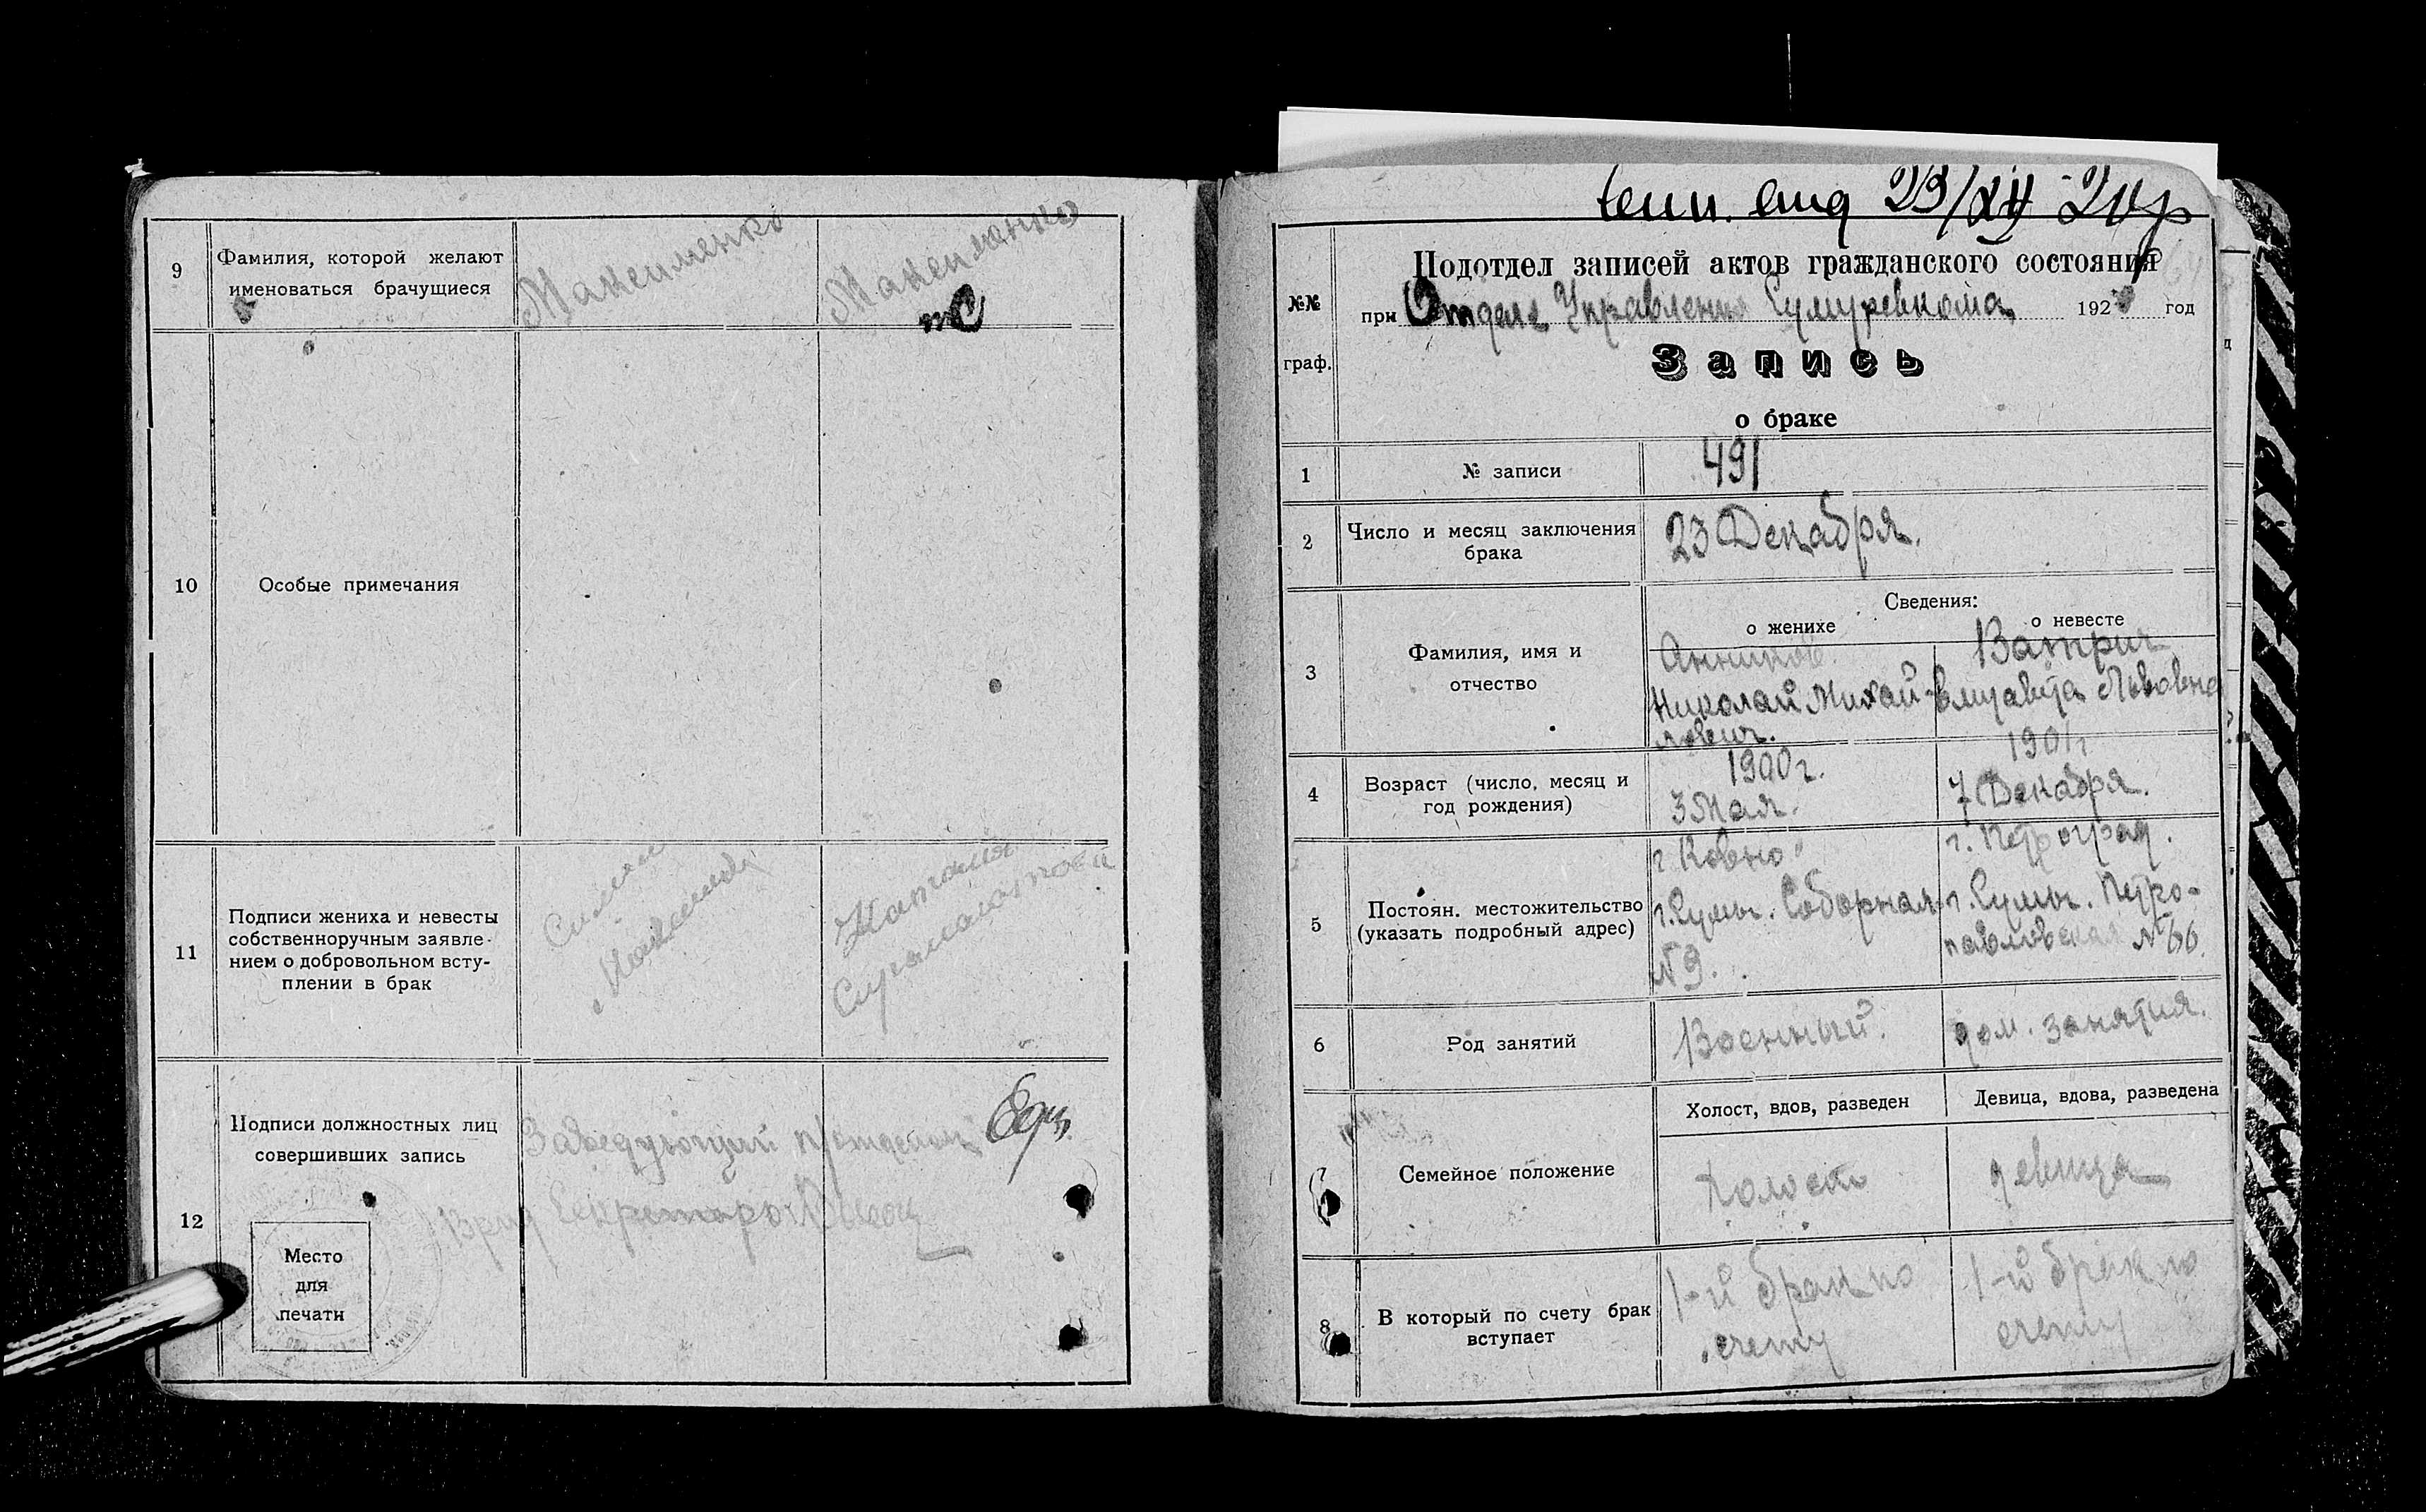 9
Фамилия, которой желают
именоваться брачущиеся
Максименко
Максименко
10
Особые примечания
11
Подписи жениха и невесты
собственноручным заявле-
нием о добровольном всту-
плении в брак
Наталия
12
Подписи должностных лиц
совершивших запись
Заведующий п/отделом
Врид Секретаро
Место
для
печати
23/XII 20 г
Подотдел записей актов гражданского состояния
№№
граф.
при Отделе Управления Сумуревкома 192 год
Запись
о браке
1
№ записи
491
2
Число и месяц заключения
брака
23 Декабря.
Сведения:
о женихе
о невесте
3
Фамилия, имя и
отчество
Анников.
Николай Михай-
лович.
Ватрич
Елизавета Львовна
4
Возраст (число, месяц и
год рождения)
1900 г.
3 Мая.
1901 г
7 Декабря.
5
Постоян. местожительство
(указать подробный адрес)
г Ковно
г. Сумы. Соборная
№ 9.
г. Петроград.
г. Сумы. Петро-
павловская № 66.
6
Род занятий
Военный.
дом. занятия.
7
Семейное положение
Холост, вдов, разведен
Девица, вдова, разведена
Холост
девица
8
В который по счету брак
вступает
1-й брак по
счету
1-й брак по
счету